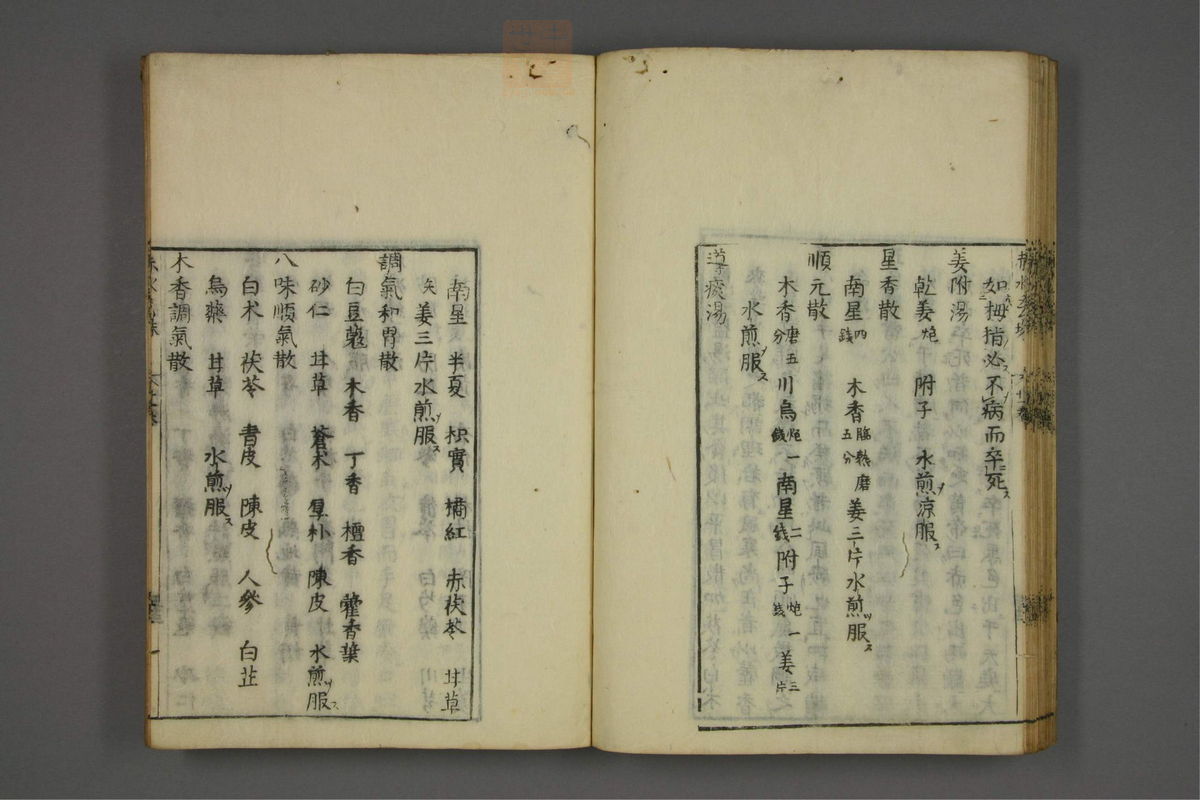 如拇指必不病而卒死ス
姜附湯
乾姜炮 附子 水煎涼服ス
星香散
南星四錢 木香臨熟磨五分 姜三片水煎服ス
順元散
木香磨五分 川烏炮一錢 南星二錢 附子炮一錢 姜三片
水煎服ス
導痰湯
南星 半夏 枳實 橘紅 赤茯苓 甘草
姜三片水煎服ス
調氣和胃散
白豆蔻 木香 丁香 檀香 藿香葉
砂仁 甘草 蒼术 厚朴 陳皮 水煎服ス
八味順氣散
白术 茯苓 青皮 陳皮 人參 白芷
烏藥 甘草 水煎服ス
木香調氣散